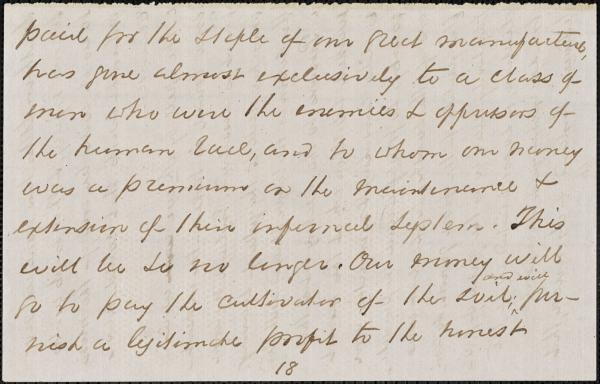 paid for the staple of our great manufacture,
has gone almost exclusively to a class of
men who were the enemies & oppressors of
the human race, and to whom our money
was a premium on the maintenance &
extension of their infernal system. This
will be so no longer. Our money will
go to pay the cultivator of the soil, and will fur-
nish a legitimate profit to the honest
18